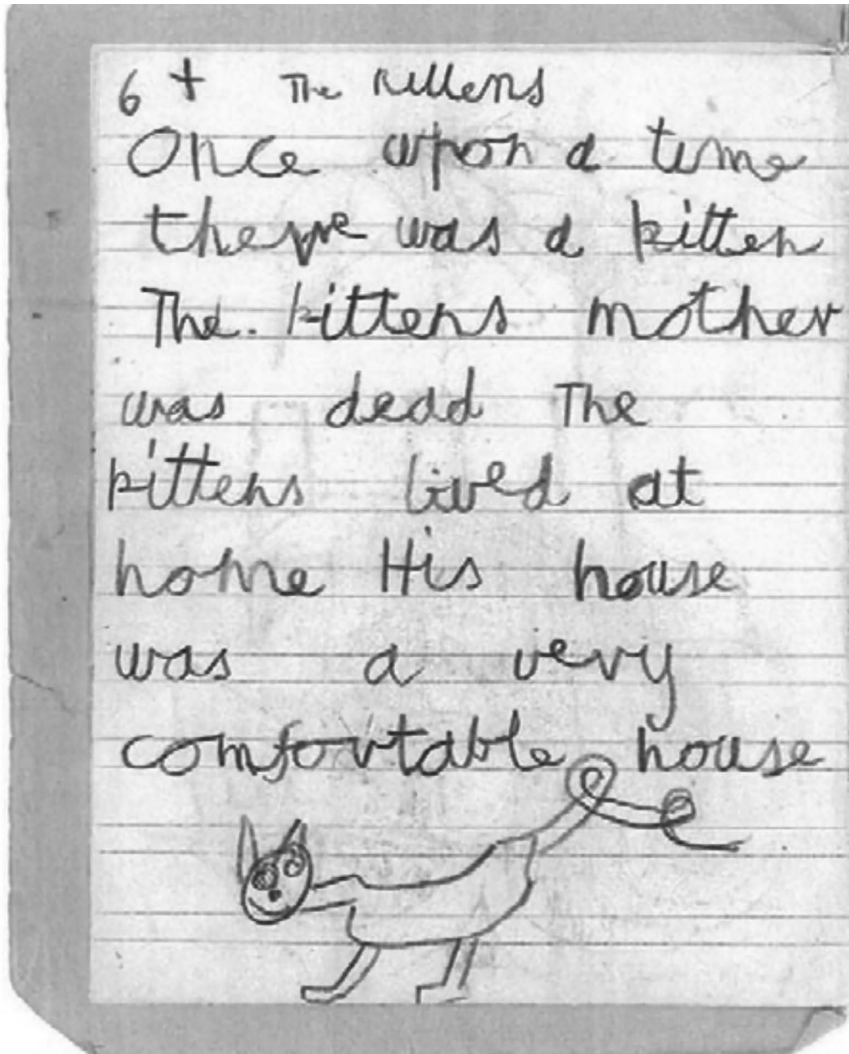 6 + The Kittens
Once upon a time
there was a kitten
The. kittens mother
was dead The
kittens lived at
home His house
was a very
comfortable house